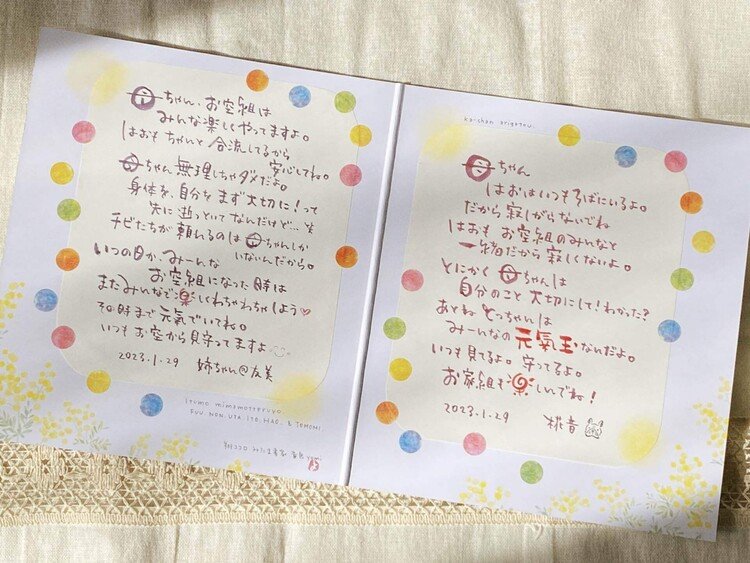 母ちゃん、お空組は
みんな楽しくやってますよ。
はおもちゃんと合流してるから
安心してね。
母ちゃん無理しちゃダメだよ。
身体を、自分をまず大切に!って
先に逝っといてなんだけど…笑
チビたちが頼れるのは母ちゃんしか
いないんだから。
いつの日か、みーんな
お空組になった時は
またみんなで楽しくわちゃわちゃしよう♡
その時まで元気でいてね。
いつもお空から見守ってますよ
2023.1.29 姉ちゃん@友美
itumo mimamotteruyo.
FUU, NON, UTA, ITO, HAO, & TOMOMI
ka-chan arigatou.
母ちゃん
はおはいつもそばにいるよ。
だから寂しがらないでね
はおも お空組のみんなと
一緒だから寂しくないよ。
とにかく 母ちゃんは
自分のこと大切にして!わかった?
あとね とっちゃんは
みーんなの元氣玉なんだよ。
いつも見てるよ。守ってるよ。
お家組も楽しいんでね!
2023.1.29